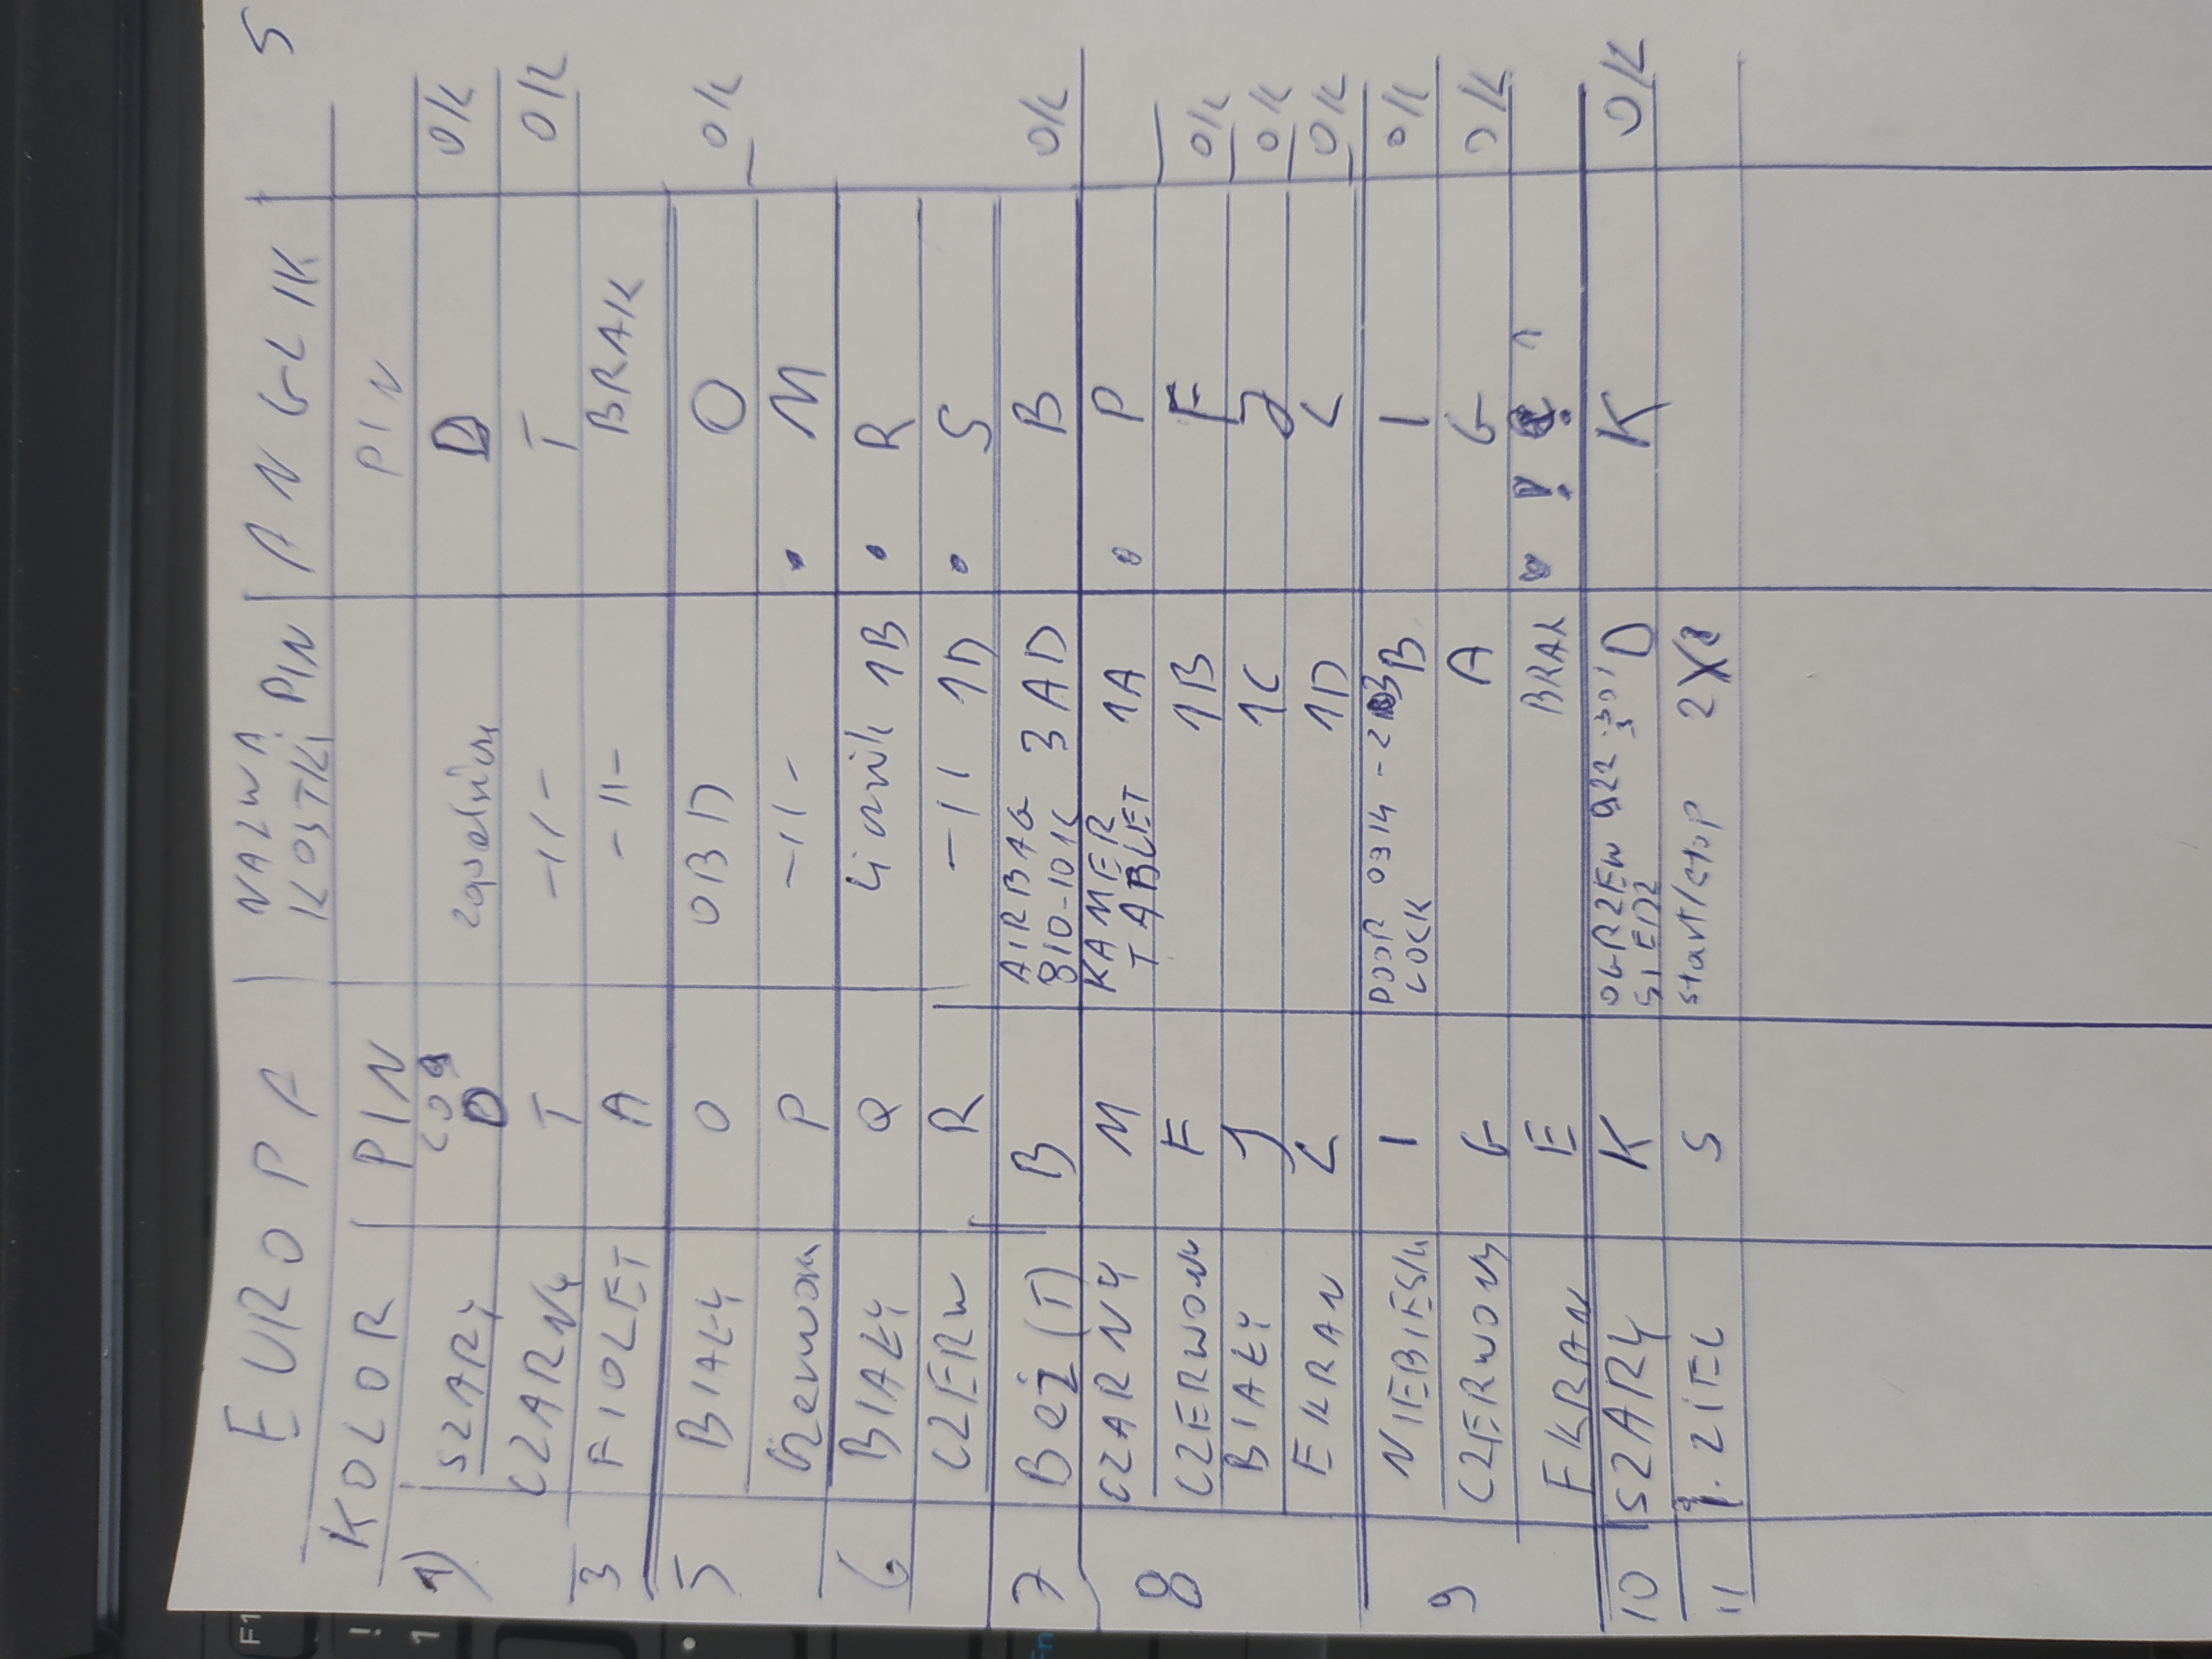 5
EUROPA | NAZWA KOSTKI PIN | ANGLIK
KOLOR PIN PIN
1) SZARY D D O/K
CZARNY T -11- T O/K
3 FIOLET A -11- BRAK
5 BIAŁY O OBD O O/K
P -11- M
6 BIAŁY Q 1B R
CZERW R -11 1D S
7 Beż (T) B AIRBAG 810-101C 3 AD B O/K
8 CZARNY M KAMER TABLET 1A P
CZERWONY F 1B F O/K
BIAŁY J 1C J O/K
EKRAN L 1D L O/K
9 NIEBIESK I DOOR LOCK 0314-2 B I O/K
CZERWONY G A G O/K
EKRAN E BRAK
10 SZARY K OGRZEW SIEDZ 922 D K O/K
11 ZIEL S start/stop 2
F1
!
1
Fn